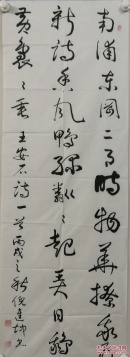 南浦东冈二月时物华撩我
新诗含风鸭绿粼粼起弄日鹅
黄袅々垂王安石诗一首丙戌之秋